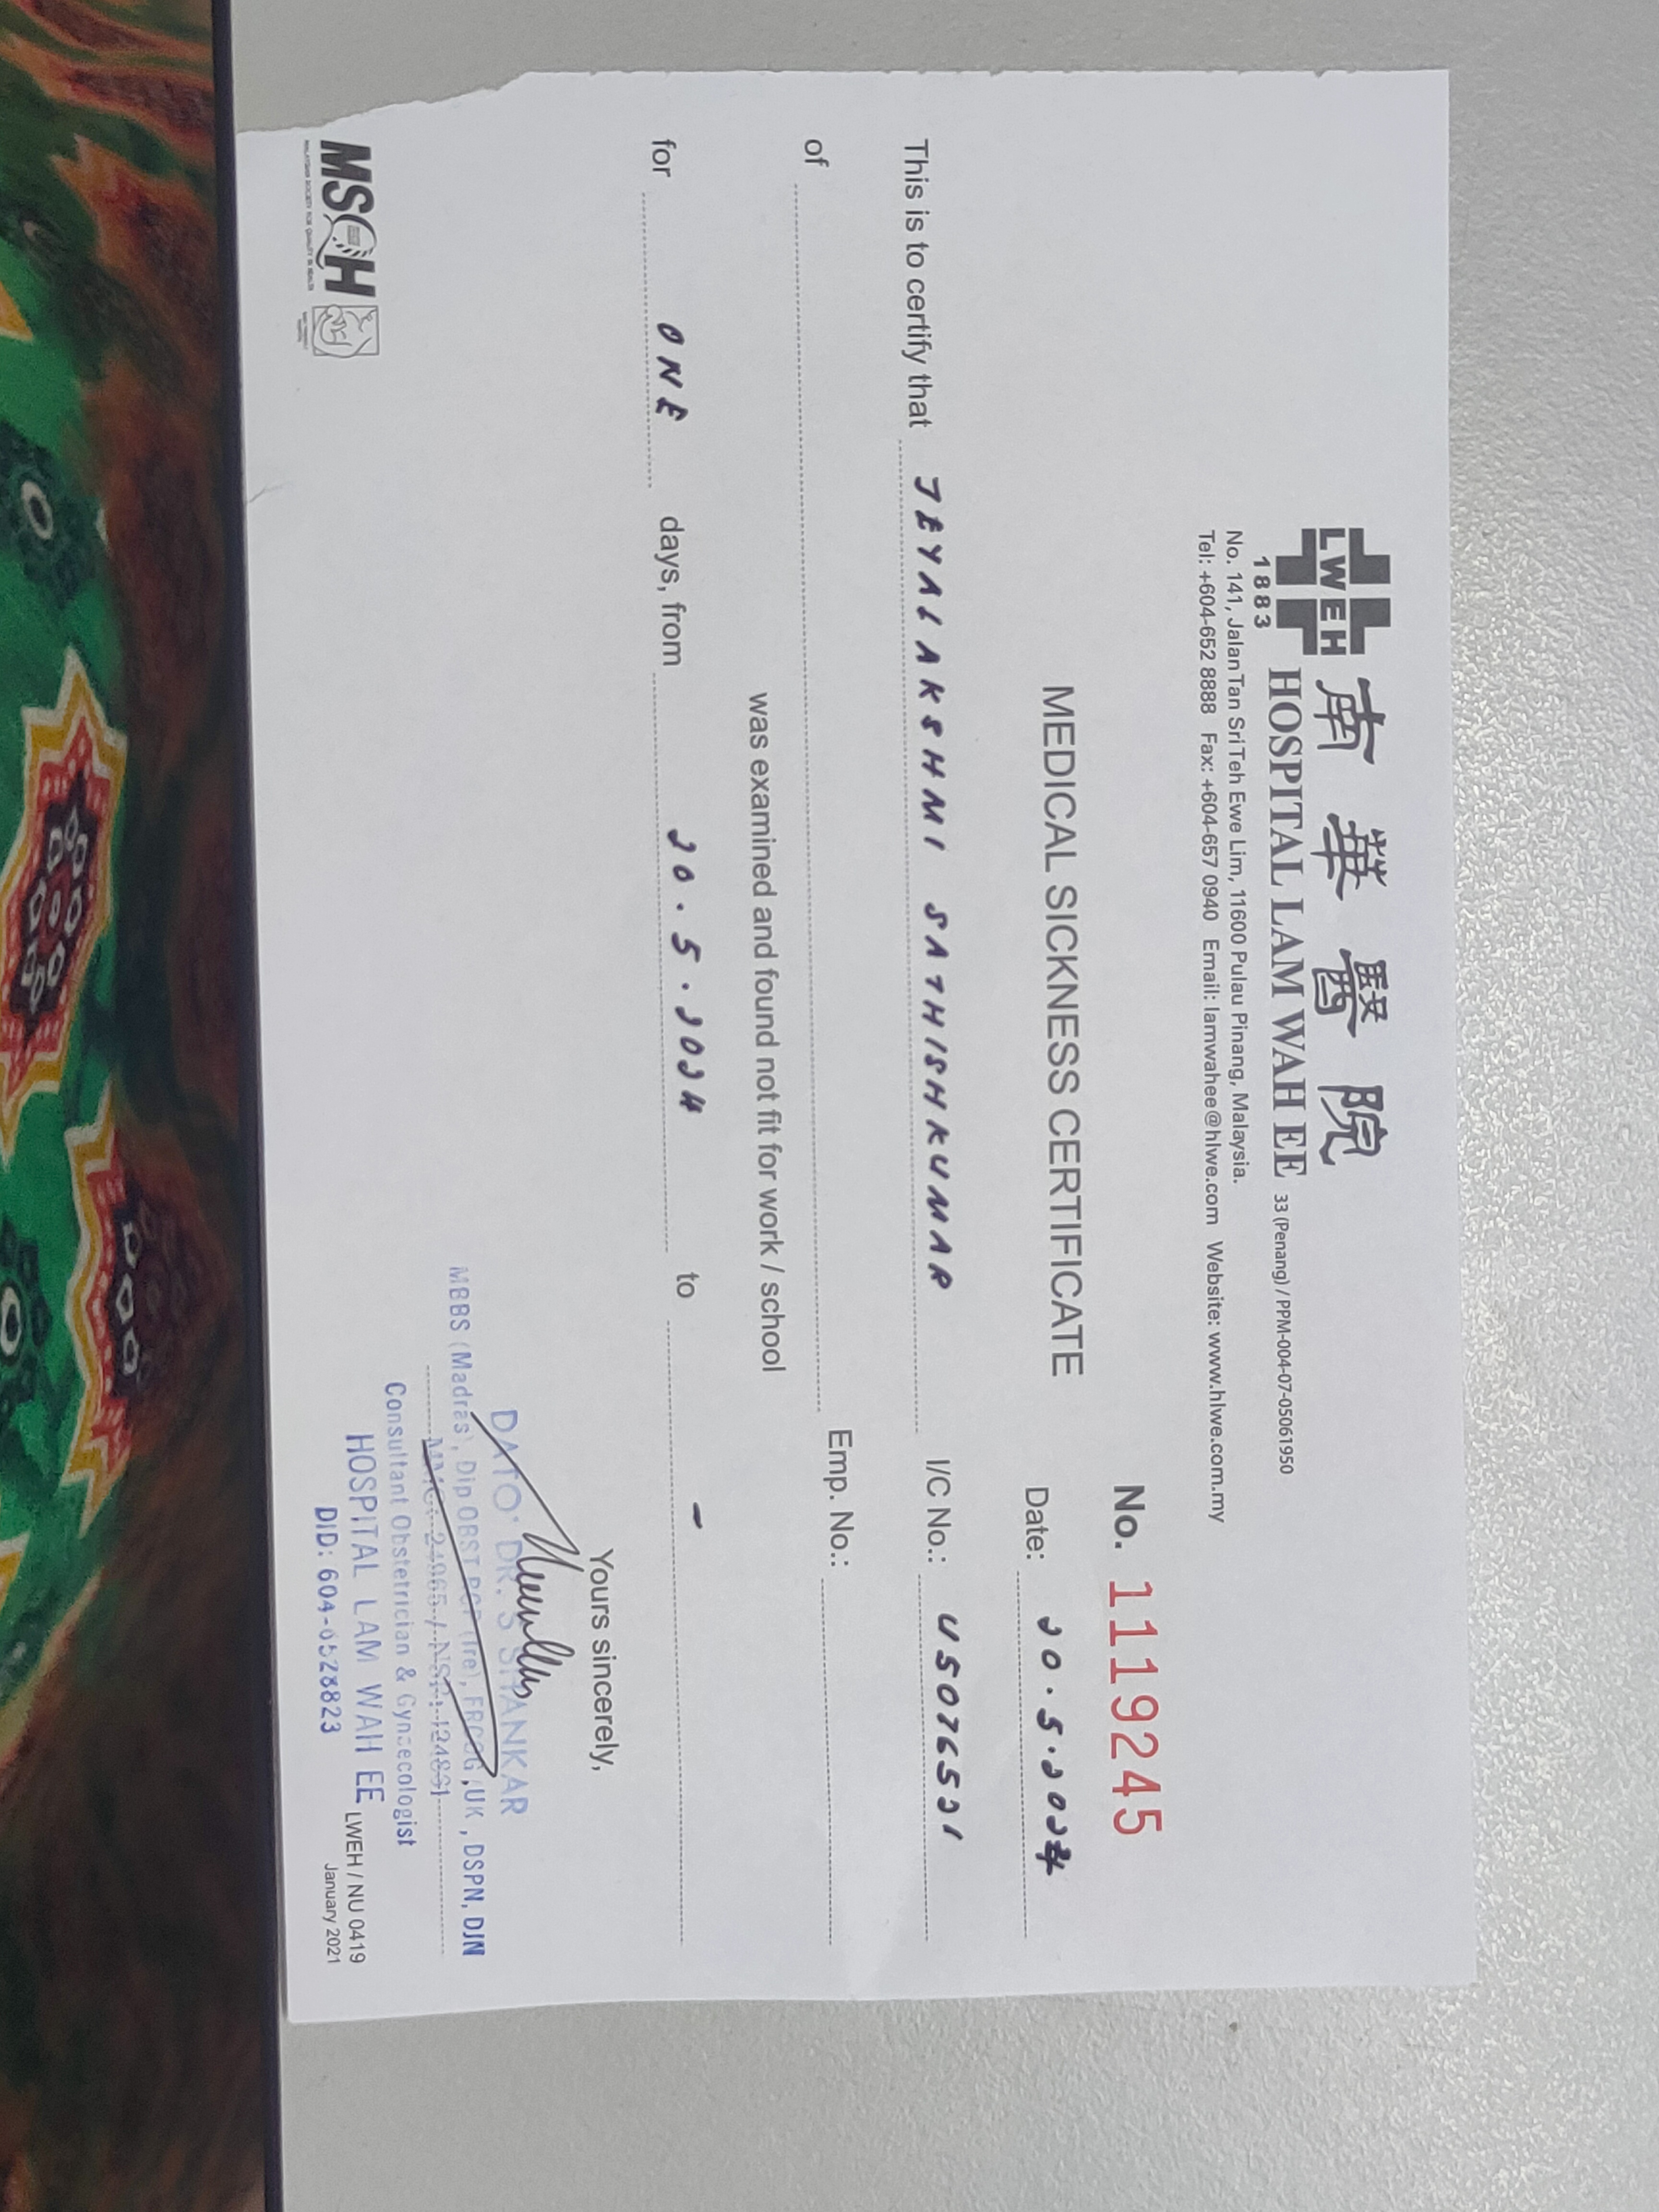 LWEH
1883
南華醫院
HOSPITAL LAM WAH EE 33 (Penang) / PPM-004-07-05061950
No. 141, Jalan Tan Sri Teh Ewe Lim, 11600 Pulau Pinang, Malaysia.
Tel: +604-652 8888 Fax: +604-657 0940 Email: lamwahee@hlwe.com Website: www.hlwe.com.my
No. 1119245
MEDICAL SICKNESS CERTIFICATE Date: 20.5.2024
This is to certify that JEYALAKSHMI SATHISHKUMAR I/C No.: U5076521
of Emp. No.:
was examined and found not fit for work / school
for ONE days, from 20.5.2024 to -
Yours sincerely,
DATO' DR. S SHANKAR
MBBS (Madras), Dip OBST RCP (Ire), FRCOG, UK, DSPN, DJN
Consultant Obstetrician & Gynaecologist
HOSPITAL LAM WAH EE
DID: 604-6528823
MSQH
LWEH / NU 0419
January 2021